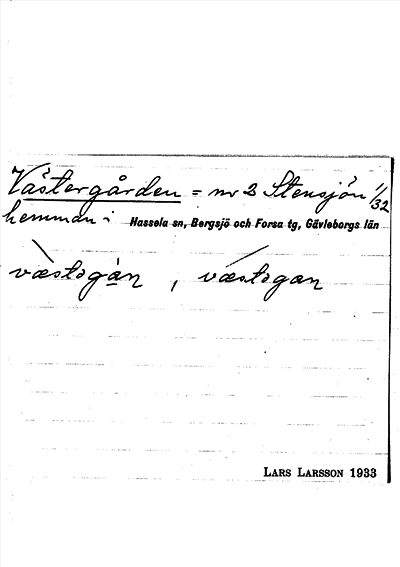 Västergården = nr 2 Stensjön 11/32
hemman i Hassela sn, Bergsjö och Forsa tg, Gävleborgs län
væ̀stəgȧ̱n , vǽstəgan
LARS LARSSON 1933